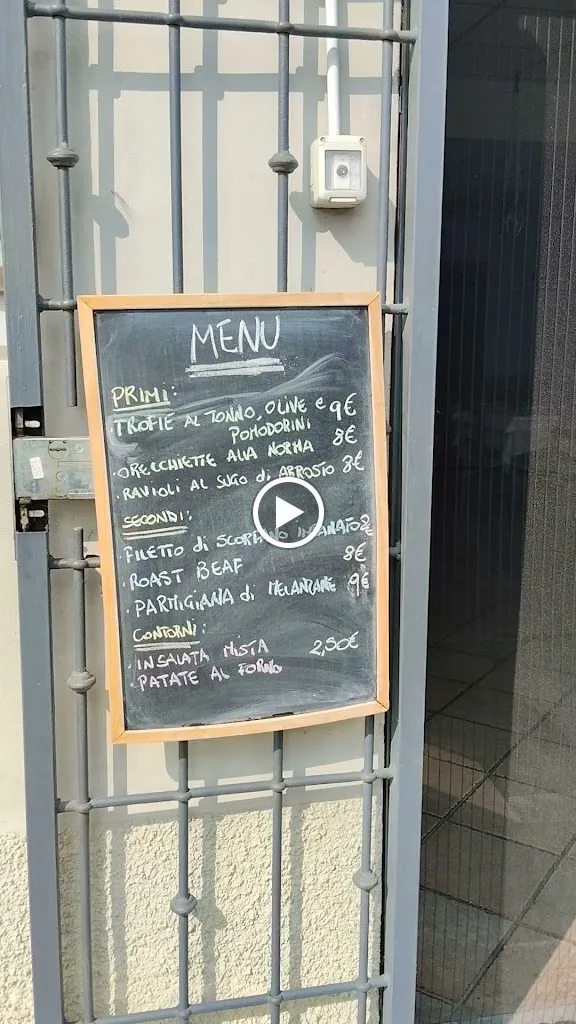 MENU
PRIMI:
·TROFIE AL TONNO, OLIVE e 9€
POMODORINI
·ORECCHIETTE ALLA NORMA 8€
·RAVIOLI AL SUGO di ARROSTO 8€
SECONDI:
·FILETTO di 8€
·ROAST BEAF 8€
·PARMIGIANA di MELANZANE 9€
CONTORNI:
·INSALATA MISTA 2,50€
·PATATE AL FORNO